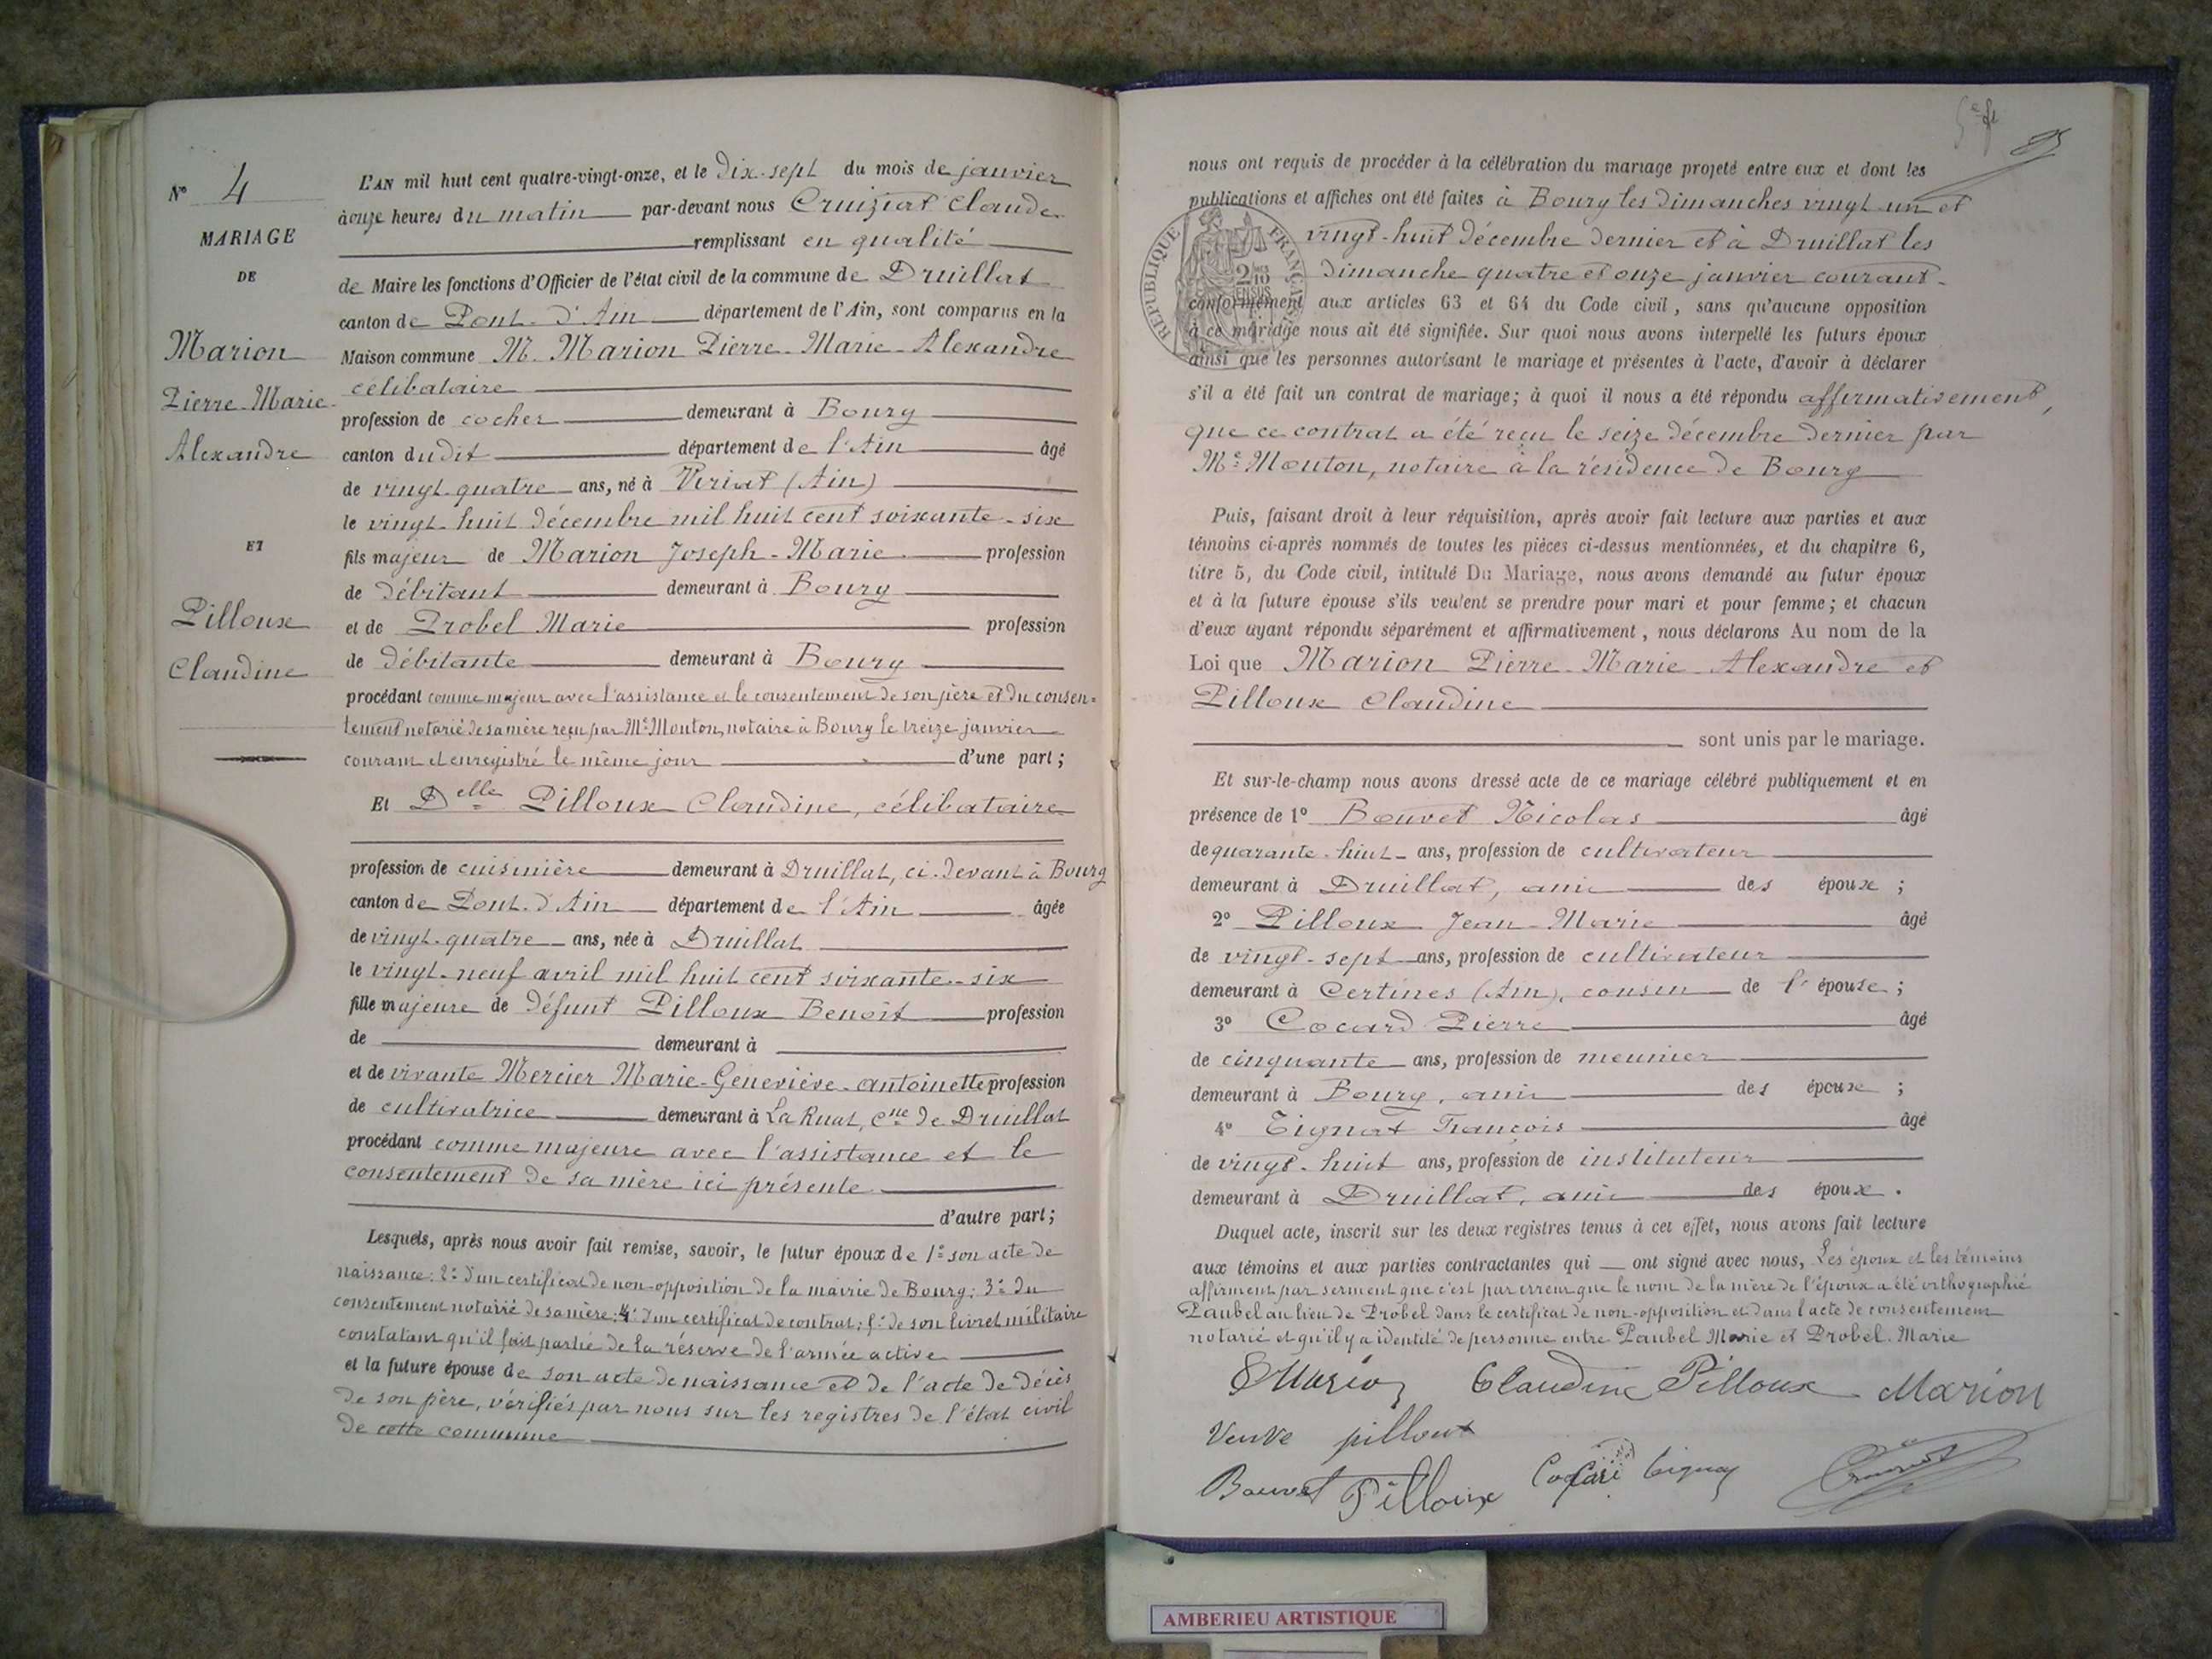 N° 4
MARIAGE
DE
Marion
Pierre-Marie-
Alexandre
ET
Pilloux
Claudine
L'AN mil huit cent quatre-vingt-onze, et le dix-sept du mois de janvier
à onze heures du matin par-devant nous Cruiziat Claude
remplissant en qualité
de Maire les fonctions d'Officier de l'état civil de la commune de Druillat
canton de Pont-d'Ain département de l'Ain, sont comparus en la
Maison commune M. Marion Pierre-Marie-Alexandre
célibataire
profession de cocher demeurant à Bourg
canton dudit département de l'Ain âgé
de vingt-quatre ans, né à Viriat (Ain)
le vingt-huit décembre mil huit cent soixante-six
fils majeur de Marion Joseph-Marie profession
de débitant demeurant à Bourg
et de Probel Marie profession
de débitante demeurant à Bourg
procédant comme majeur avec l'assistance et le consentement de son père et du consen=
tement notarié de sa mère reçu par Me Mouton, notaire à Bourg le treize janvier
courant et enregistré le même jour d'une part ;
Et Delle Pilloux Claudine, célibataire
profession de cuisinière demeurant à Druillat, ci-devant à Bourg
canton de Pont-d'Ain département de l'Ain âgée
de vingt-quatre ans, née à Druillat
le vingt-neuf avril mil huit cent soixante-six
fille majeure de défunt Pilloux Benoît profession
de demeurant à
et de vivante Mercier Marie-Geneviève-Antoinette profession
de cultivatrice demeurant à La Ruat, cne de Druillat
procédant comme majeure avec l'assistance et le
consentement de sa mère ici présente
d'autre part ;
Lesquels, après nous avoir fait remise, savoir, le futur époux de 1° son acte de
naissance; 2° d'un certificat de non-opposition de la mairie de Bourg; 3° du
consentement notarié de sa mère; 4° d'un certificat de contrat; 5° de son livret militaire
constatant qu'il fait partie de la réserve de l'armée active
et la future épouse de son acte de naissance et de l'acte de décès
de son père, vérifiés par nous sur les registres de l'état civil
de cette commune
nous ont requis de procéder à la célébration du mariage projeté entre eux et dont les
publications et affiches ont été faites à Bourg les dimanches vingt-un et
vingt-huit décembre dernier et à Druillat les
dimanche quatre et onze janvier courant
RÉPUBLIQUE FRANÇAISE
conformément aux articles 63 et 64 du Code civil, sans qu'aucune opposition
à ce mariage nous ait été signifiée. Sur quoi nous avons interpellé les futurs époux
ainsi que les personnes autorisant le mariage et présentes à l'acte, d'avoir à déclarer
s'il a été fait un contrat de mariage; à quoi il nous a été répondu affirmativement,
que ce contrat a été reçu le seize décembre dernier par
Me Mouton, notaire à la résidence de Bourg
Puis, faisant droit à leur réquisition, après avoir fait lecture aux parties et aux
témoins ci-après nommés de toutes les pièces ci-dessus mentionnées, et du chapitre 6,
titre 5, du Code civil, intitulé Du Mariage, nous avons demandé au futur époux
et à la future épouse s'ils veulent se prendre pour mari et pour femme; et chacun
d'eux ayant répondu séparément et affirmativement, nous déclarons Au nom de la
Loi que Marion Pierre-Marie-Alexandre et
Pilloux Claudine
sont unis par le mariage.
Et sur-le-champ nous avons dressé acte de ce mariage célébré publiquement et en
présence de 1° Bouvet Nicolas âgé
de quarante-huit ans, profession de cultivateur
demeurant à Druillat, ami des époux ;
2° Pilloux Jean-Marie âgé
de vingt-sept ans, profession de cultivateur
demeurant à Certines (Ain), cousin de l'épouse ;
3° Cocard Pierre âgé
de cinquante ans, profession de meunier
demeurant à Bourg, ami des époux ;
4° Tignat François âgé
de vingt-huit ans, profession de instituteur
demeurant à Druillat, ami des époux.
Duquel acte, inscrit sur les deux registres tenus à cet effet, nous avons fait lecture
aux témoins et aux parties contractantes qui ont signé avec nous, Les époux et les témoins
affirment par serment que c'est par erreur que le nom de la mère de l'époux a été orthographié
Paubel au lieu de Probel dans le certificat de non-opposition et dans l'acte de consentement
notarié et qu'il y a identité de personne entre Paubel Marie et Probel Marie
Marion Claudine Pilloux Marion
Veuve pilloux
Bouvet Pilloux Cocard Tignat Cruiziat
AMBERIEU ARTISTIQUE